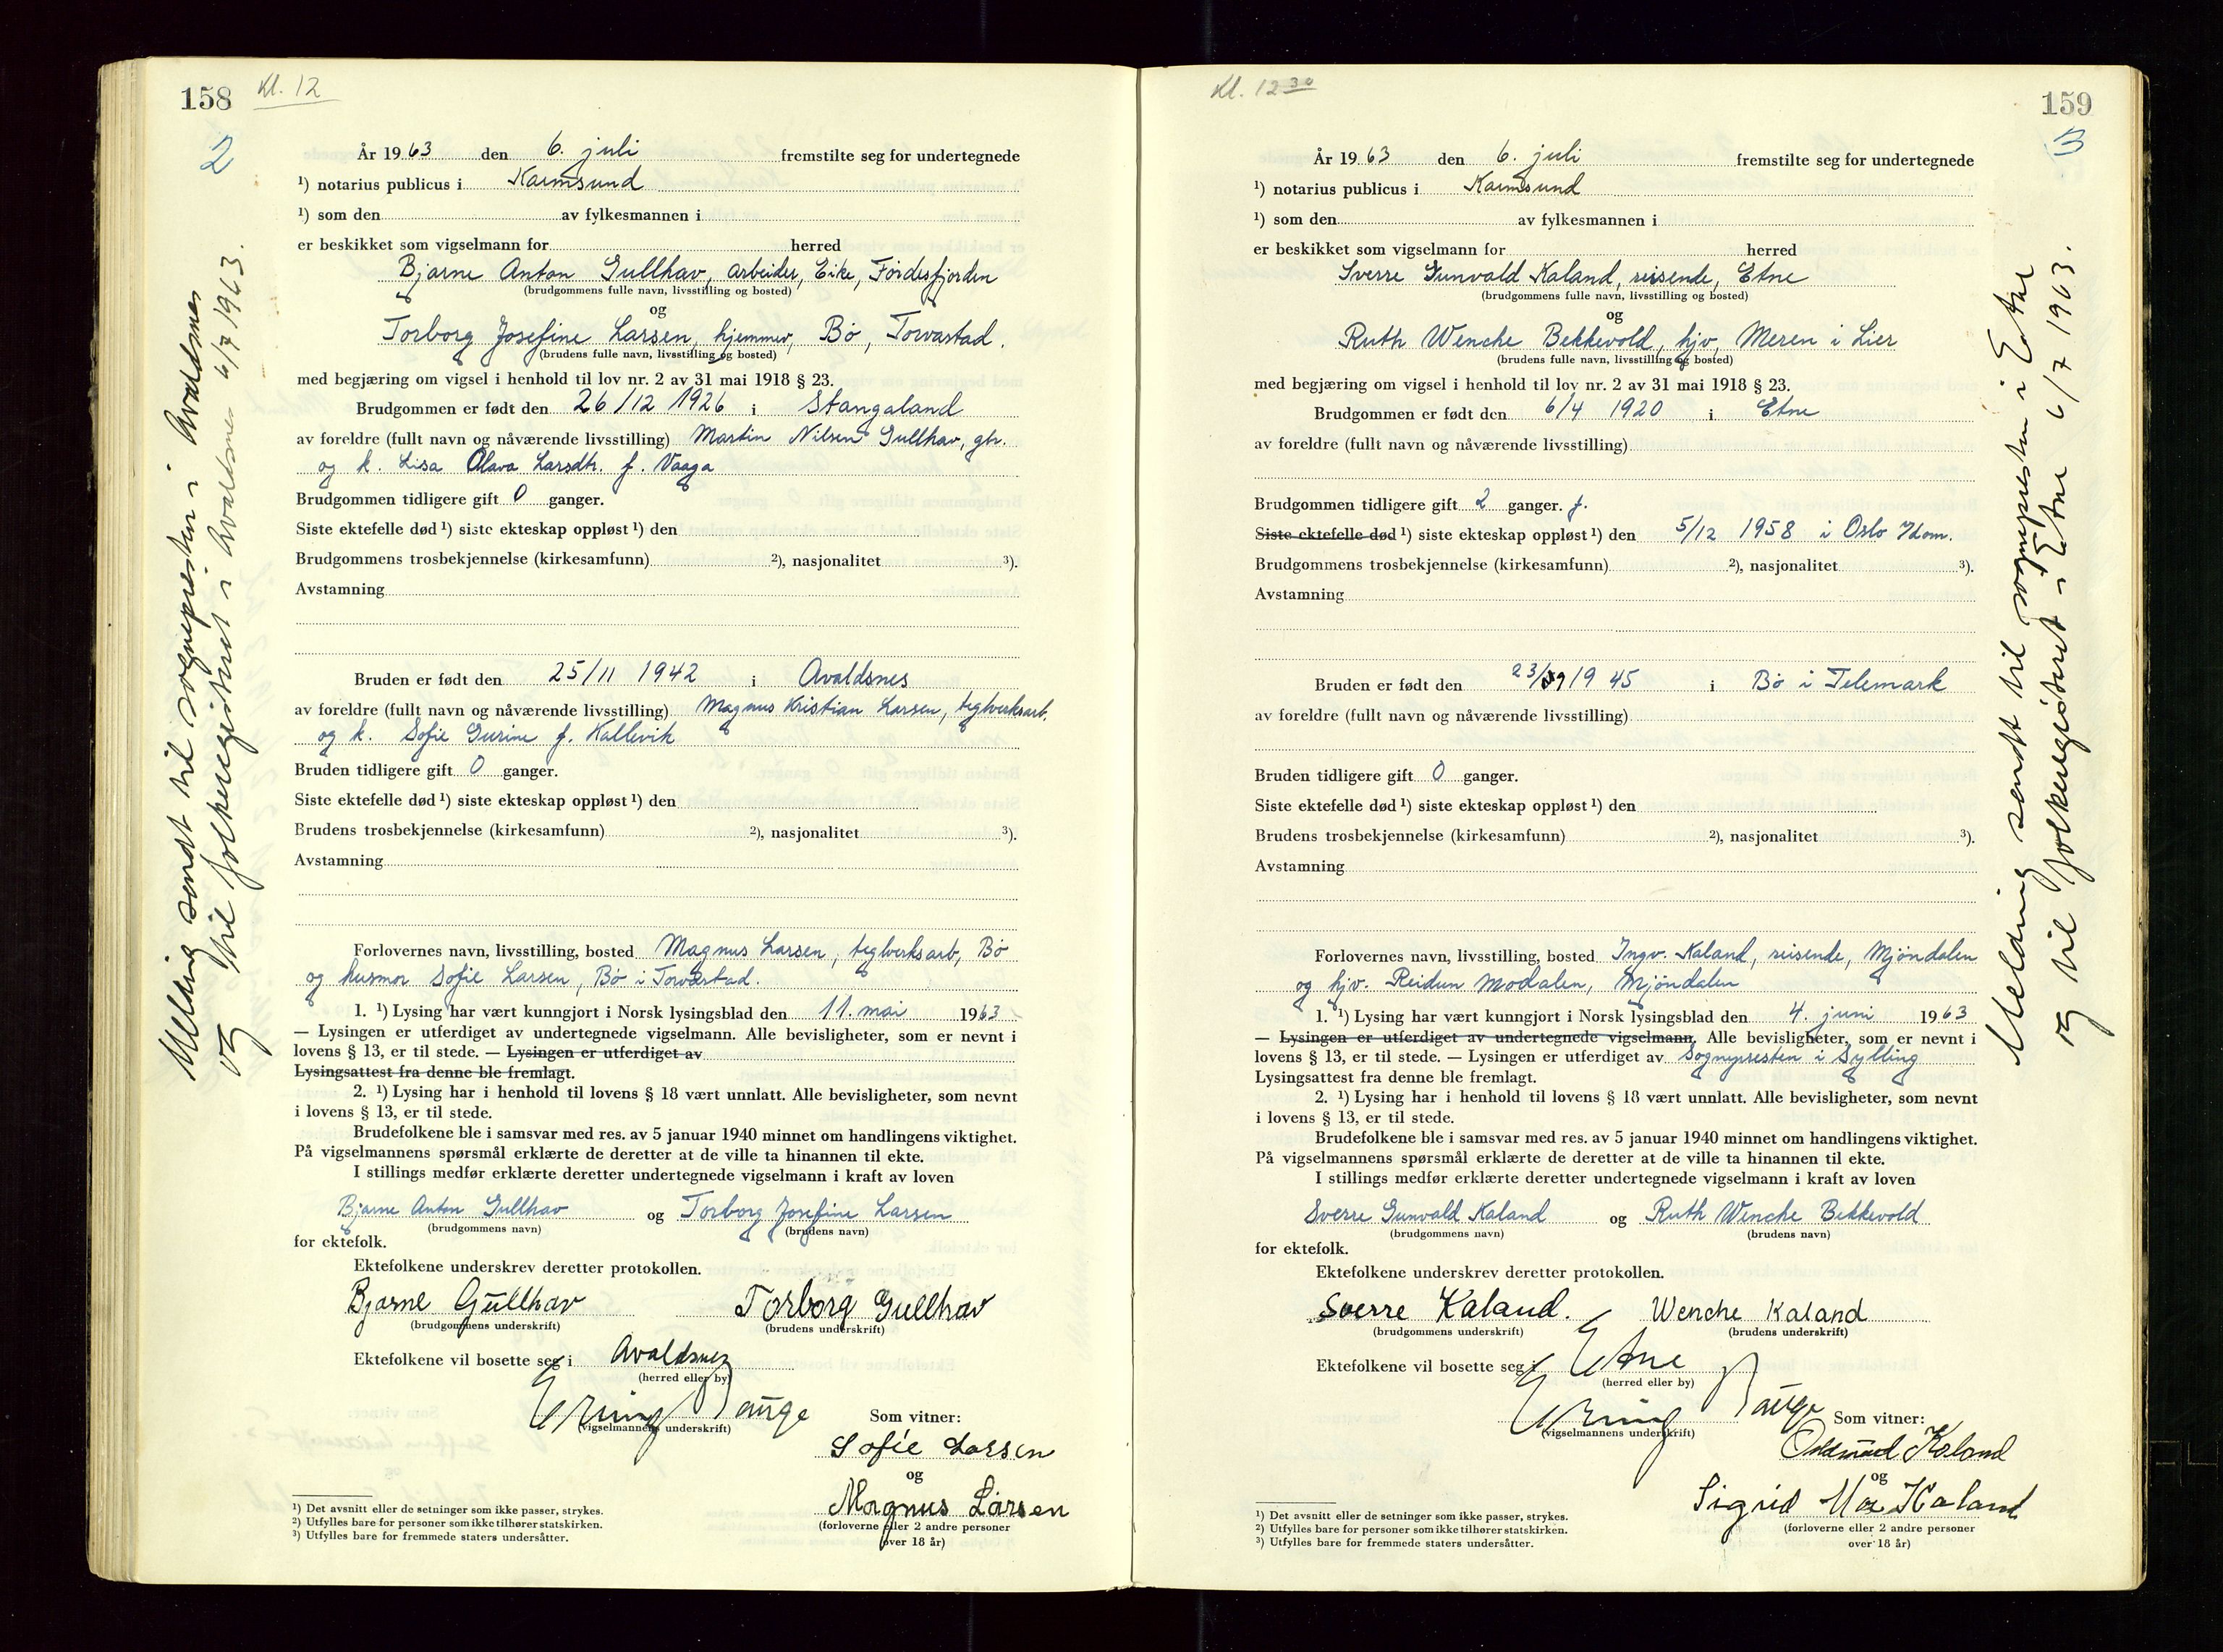 158 Kl. 12
2
År 1963 den 6. juli fremstilte seg for undertegnede
¹) notarius publicus i Karmsund
¹) som den av fylkesmannen i
er beskikket som vigselmann for herred
Bjarne Anton Gullhav, arbeider, Eike, Førdesfjorden
(brudgommens fulle navn, livsstilling og bosted)
og
Torborg Josefine Larsen, hjemmev, Bø, Torvastad.
(brudens fulle navn, livsstilling og bosted)
med begjæring om vigsel i henhold til lov nr. 2 av 31 mai 1918 § 23.
Brudgommen er født den 26/12 1926 i Stangaland
av foreldre (fullt navn og nåværende livsstilling) Martin Nilsen Gullhav, gbr.
og k. Lisa Olava Larsdtr. f. Vaaga
Brudgommen tidligere gift 0 ganger.
Siste ektefelle død ¹) siste ekteskap oppløst ¹) den
Brudgommens trosbekjennelse (kirkesamfunn) ²), nasjonalitet ³).
Avstamning
Bruden er født den 25/11 1942 i Avaldsnes
av foreldre (fullt navn og nåværende livsstilling) Magnus Kristian Larsen, teglverksarb.
og k. Sofie Gurine f. Kallevik
Bruden tidligere gift 0 ganger.
Siste ektefelle død ¹) siste ekteskap oppløst ¹) den
Brudens trosbekjennelse (kirkesamfunn) ²), nasjonalitet ³).
Avstamning
Forlovernes navn, livsstilling, bosted Magnus Larsen, teglverksarb, Bø
og husmor Sofie Larsen, Bø i Torvastad.
1. ¹) Lysing har vært kunngjort i Norsk lysingsblad den 11. mai 1963
— Lysingen er utferdiget av undertegnede vigselmann. Alle bevisligheter, som er nevnt i
lovens § 13, er til stede. — Lysingen er utferdiget av
Lysingsattest fra denne ble fremlagt.
2. ¹) Lysing har i henhold til lovens § 18 vært unnlatt. Alle bevisligheter, som nevnt
i lovens § 13, er til stede.
Brudefolkene ble i samsvar med res. av 5 januar 1940 minnet om handlingens viktighet.
På vigselmannens spørsmål erklærte de deretter at de ville ta hinannen til ekte.
I stillings medfør erklærte deretter undertegnede vigselmann i kraft av loven
Bjarne Anton Gullhav og Torborg Josefine Larsen
(brudgommens navn) (brudens navn)
for ektefolk.
Ektefolkene underskrev deretter protokollen.
Bjarne Gullhav Torborg Gullhav
(brudgommens underskrift) (brudens underskrift)
Ektefolkene vil bosette seg i Avaldsnes
(herred eller by)
Erling Bauge
(vigselmannens underskrift)
Som vitner:
Sofie Larsen
og
Magnus Larsen
(forloverne eller 2 andre personer
over 18 år)
¹) Det avsnitt eller de setninger som ikke passer, strykes.
²) Utfylles bare for personer som ikke tilhører statskirken.
³) Utfylles bare for fremmede staters undersåtter.
Melding sendt til sognepresten i Avaldsnes
og til folkeregisteret i Avaldsnes 6/7 1963.
Kl. 12 30 159
3
År 1963 den 6. juli fremstilte seg for undertegnede
¹) notarius publicus i Karmsund
¹) som den av fylkesmannen i
er beskikket som vigselmann for herred
Sverre Gunvald Kaland, reisende, Etne
(brudgommens fulle navn, livsstilling og bosted)
og
Ruth Wenche Bekkevold, hjv, Meren i Lier
(brudens fulle navn, livsstilling og bosted)
med begjæring om vigsel i henhold til lov nr. 2 av 31 mai 1918 § 23.
Brudgommen er født den 6/4 1920 i Etne
av foreldre (fullt navn og nåværende livsstilling)
Brudgommen tidligere gift 2 ganger. f.
Siste ektefelle død ¹) siste ekteskap oppløst ¹) den 5/12 1958 i Oslo
Brudgommens trosbekjennelse (kirkesamfunn) ²), nasjonalitet ³).
Avstamning
Bruden er født den 23/9 1945 i Bø i Telemark
av foreldre (fullt navn og nåværende livsstilling)
Bruden tidligere gift 0 ganger.
Siste ektefelle død ¹) siste ekteskap oppløst ¹) den
Brudens trosbekjennelse (kirkesamfunn) ²), nasjonalitet ³).
Avstamning
Forlovernes navn, livsstilling, bosted Ingv. Kaland, reisende, Mjøndalen
og hjv. Reidun Modalen, Mjøndalen
1. ¹) Lysing har vært kunngjort i Norsk lysingsblad den 4. juni 1963
— Lysingen er utferdiget av undertegnede vigselmann. Alle bevisligheter, som er nevnt i
lovens § 13, er til stede. — Lysingen er utferdiget av Sognepresten i Sylling
Lysingsattest fra denne ble fremlagt.
2. ¹) Lysing har i henhold til lovens § 18 vært unnlatt. Alle bevisligheter, som nevnt
i lovens § 13, er til stede.
Brudefolkene ble i samsvar med res. av 5 januar 1940 minnet om handlingens viktighet.
På vigselmannens spørsmål erklærte de deretter at de ville ta hinannen til ekte.
I stillings medfør erklærte deretter undertegnede vigselmann i kraft av loven
Sverre Gunvald Kaland og Ruth Wenche Bekkevold
(brudgommens navn) (brudens navn)
for ektefolk.
Ektefolkene underskrev deretter protokollen.
Sverre Kaland. Wenche Kaland
(brudgommens underskrift) (brudens underskrift)
Ektefolkene vil bosette seg i Etne
(herred eller by)
Erling Bauge
(vigselmannens underskrift)
Som vitner:
Kaland
og
Sigrid Kaland
(forloverne eller 2 andre personer
over 18 år)
¹) Det avsnitt eller de setninger som ikke passer, strykes.
²) Utfylles bare for personer som ikke tilhører statskirken.
³) Utfylles bare for fremmede staters undersåtter.
Melding sendt til sognepresten i Etne
og til folkeregisteret i Etne 6/7 1963.